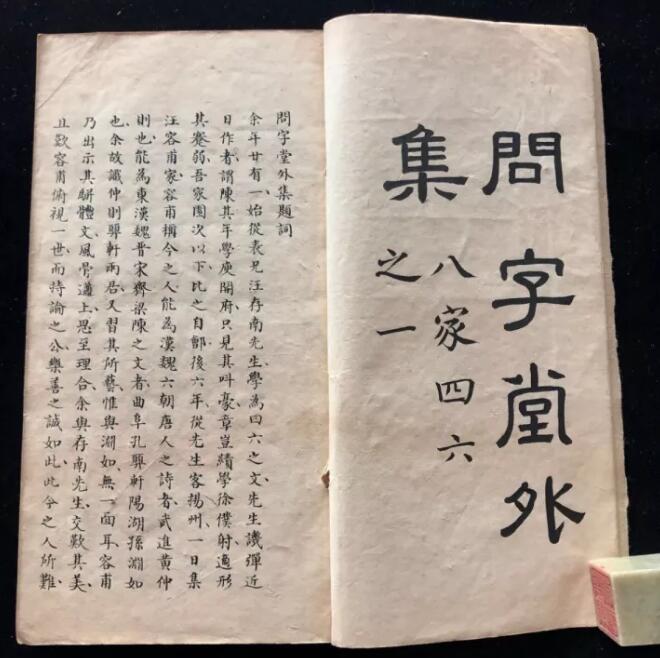 問字堂外
集
八家四六
之一
問字堂外集題詞
余年廿有一始從表兄汪存南先生學為四六之文先生譏彈近
日作者謂陳其年學庾開府只見其叫豪章豈績學徐僕射適形
其蹇弱吾家園次以下比之自鄶後六年從先生客揚州一日集
汪容甫家容甫稱今之人能為漢魏六朝唐人之詩者武進黃仲
則也能為東漢魏晉宋齊梁陳之文者曲阜孔顨軒陽湖孫淵如
也余故識仲則顨軒兩君又習其所藝惟與淵如無一面耳容甫
乃出示其駢體文風骨遒上思至理合余與存南先生交歎其美
且歎容甫俯視一世而持論之公樂善之誠如此此今之人所難